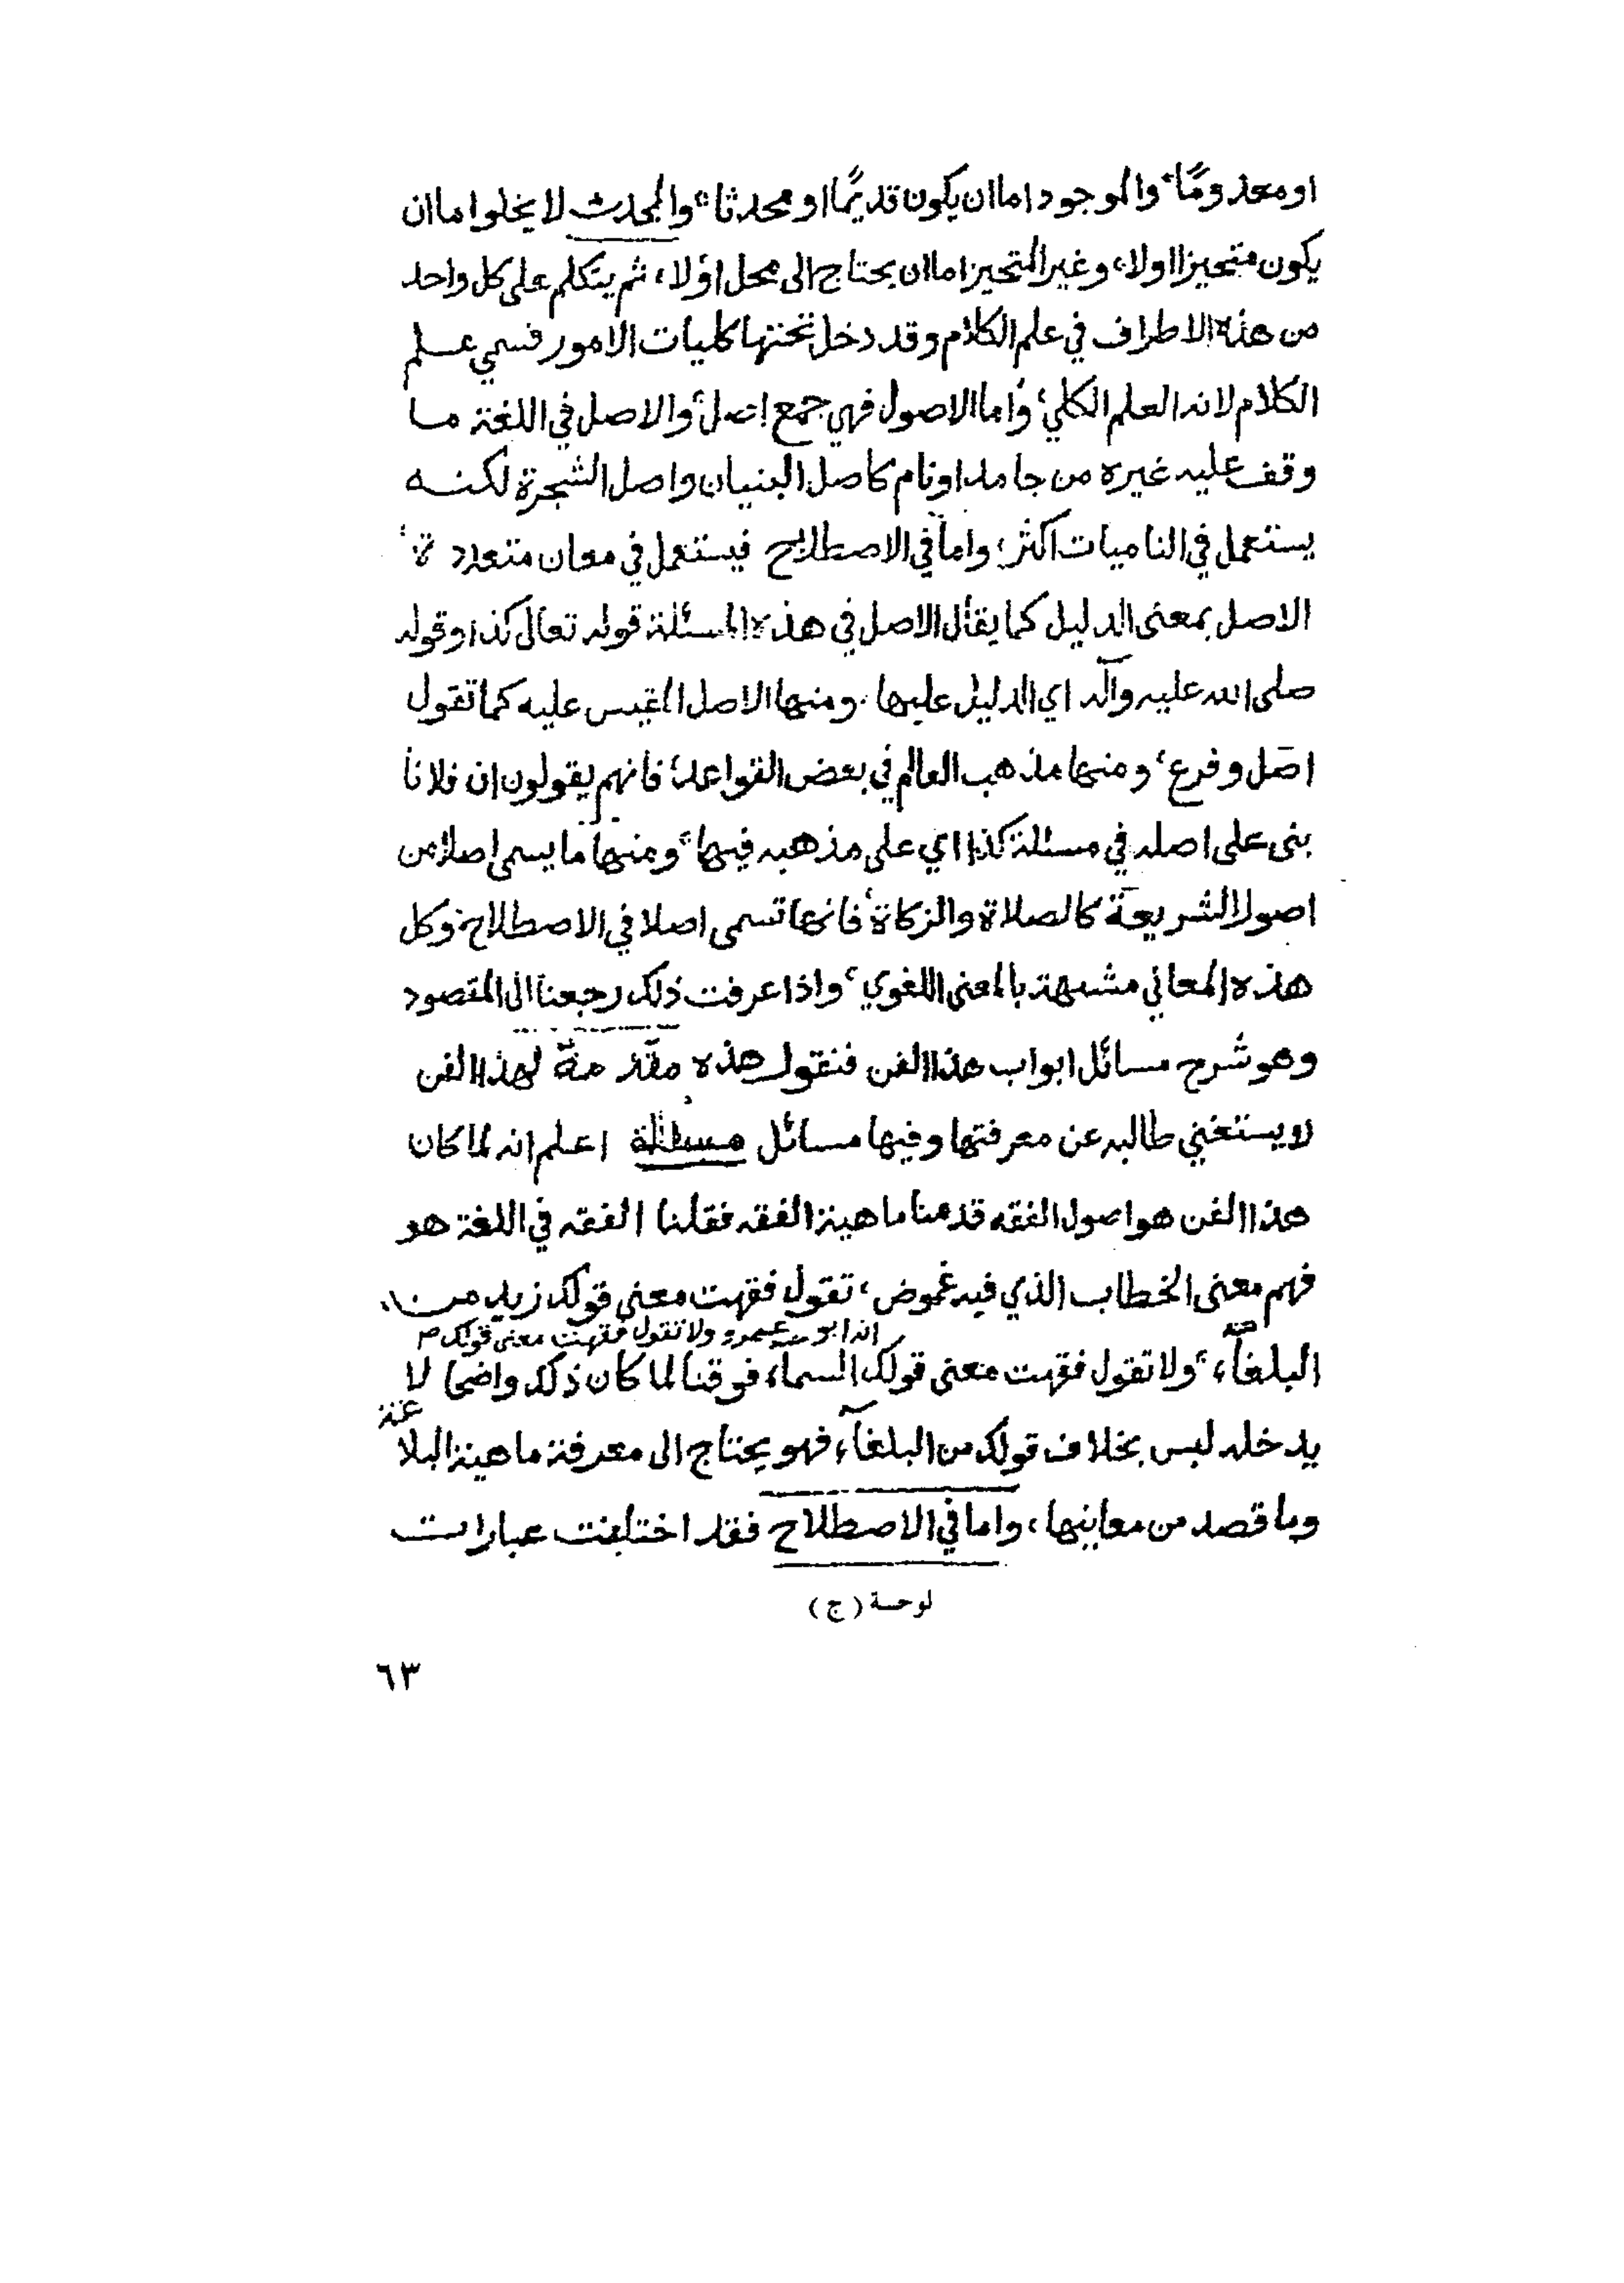 او معدومًا، والموجود اما ان يكون قديمًا او محدثا، والمحدث لا يخلوا اما ان
يكون متحيزا اولا، وغير المتحيز اما ان يحتاج الى محل اولا، ثم يتكلم على كل واحد
من هذه الاطراف في علم الكلام وقد دخل تحتها كليات الامور فسمي علم
الكلام لانه العلم الكلي، واما الاصول فهي جمع اصل، والاصل في اللغة ما
وقف عليه غيره من جامد او نام كاصل البنيان واصل الشجرة لكنه
يستعمل في الناميات اكثر، واما في الاصطلاح فيستعمل في معان متعددة،
الاصل بمعنى الدليل كما يقال الاصل في هذه المسئلة قوله تعالى كذا وقوله
صلى الله عليه وآله اي الدليل عليها. ومنها الاصل المقيس عليه كما تقول
اصل وفرع، ومنها مذهب العالم في بعض القواعد، فانهم يقولون ان فلانا
بنى على اصله في مسئلة كذا اي على مذهبه فيها، ومنها ما يسمى اصلا من
اصول الشريعة كالصلاة والزكاة، فانها تسمى اصلا في الاصطلاح، وكل
هذه المعاني مشبهة بالمعنى اللغوي، واذا عرفت ذلك رجعنا الى المقصود
وهو شرح مسائل ابواب هذا الفن فنقول هذه مقدمة لهذا الفن
لا يستغني طالبه عن معرفتها وفيها مسائل مسئلة اعلم انه لما كان
هذا الفن هو اصول الفقه قدمنا ماهية الفقه فقلنا الفقه في اللغة هو
فهم معنى الخطاب الذي فيه غموض، تقول فقهت معنى قولك زيد من
انه ابو عمرو ولا تقول فقهت معنى قولك
البلغآء، ولا تقول فقهت معنى قولك السماء فوقنا لما كان ذلك واضحا لا
يدخله لبس بخلاف قولك من البلغآء، فهو يحتاج الى معرفة ماهية البلاغة
وما قصد من معانيها، واما في الاصطلاح فقد اختلفت عبارات
لوحة (ج)
٦٣